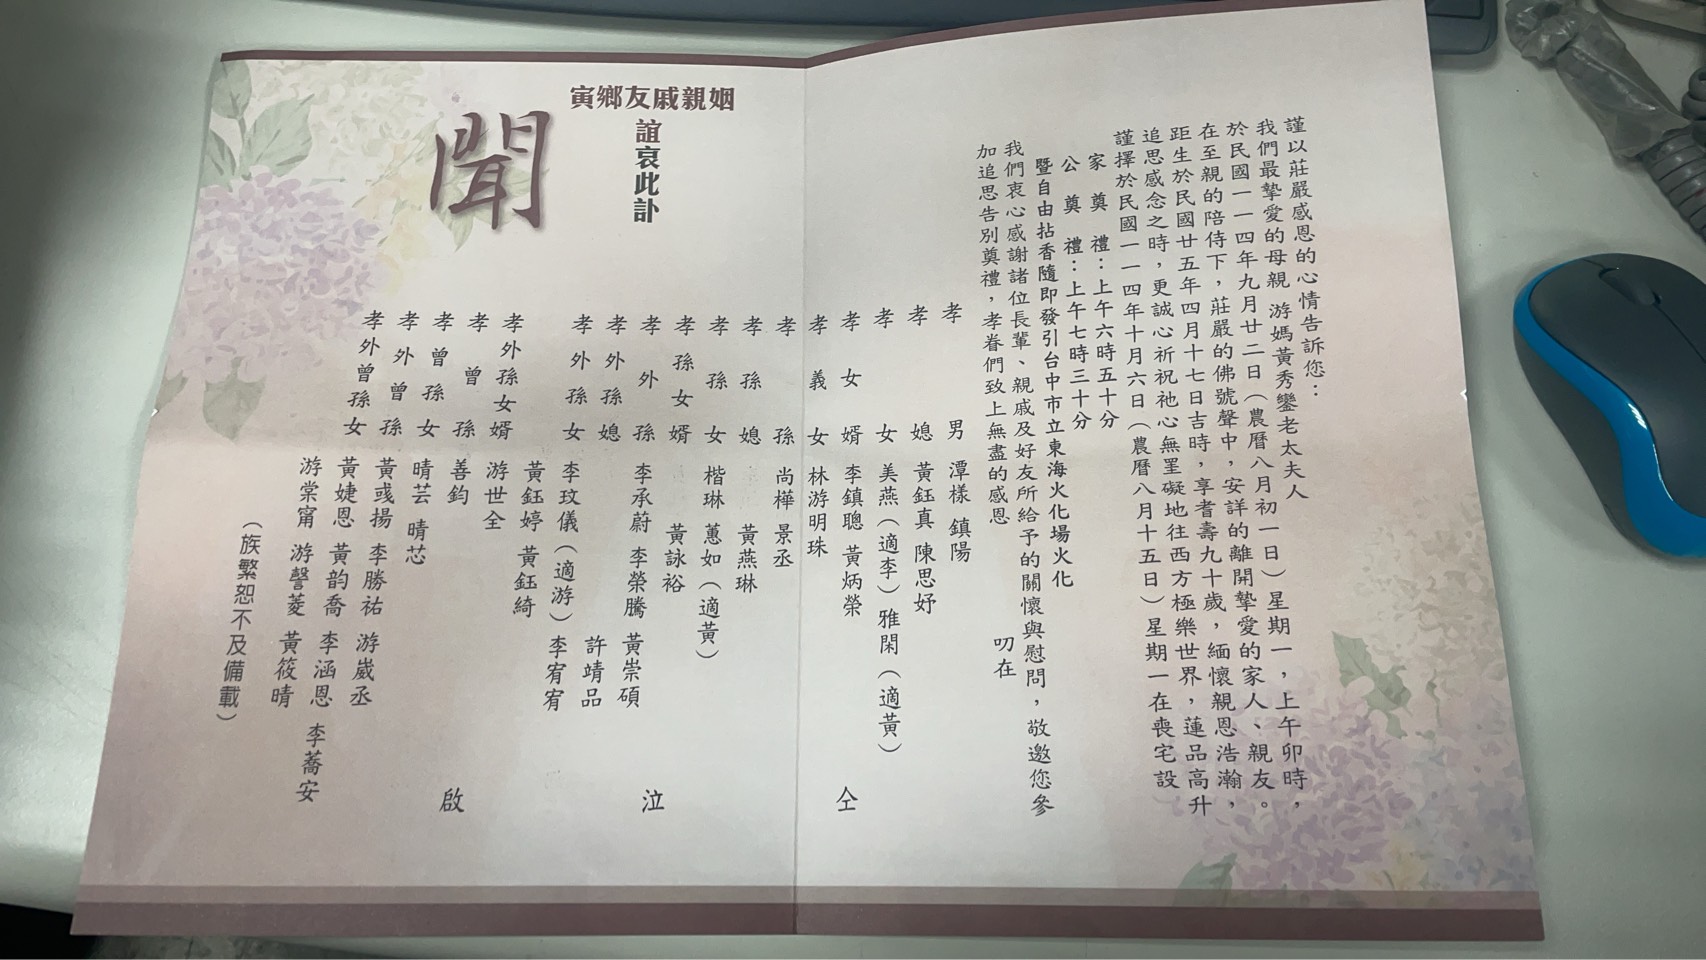 謹以莊嚴感恩的心情告訴您：
我們最摯愛的母親 游媽黃秀鑾老太夫人
於民國一一四年九月廿二日（農曆八月初一日）星期一，上午卯時，
在至親的陪侍下，莊嚴的佛號聲中，安詳的離開摯愛的家人、親友。
距生於民國廿五年四月十七日吉時，享耆壽九十歲，緬懷親恩浩瀚，
追思感念之時，更誠心祈祝祂心無罣礙地往西方極樂世界，蓮品高升
謹擇於民國一一四年十月六日（農曆八月十五日）星期一在喪宅設
家奠禮：上午六時五十分
公奠禮：上午七時三十分
暨自由拈香隨即發引台中市立東海火化場火化
我們衷心感謝諸位長輩、親戚及好友所給予的關懷與慰問，敬邀您參
加追思告別奠禮，孝眷們致上無盡的感恩 叨在
孝男 潭樣 鎮陽
孝媳 黃鈺真 陳思妤
孝女 美燕（適李）雅閑（適黃）
孝女婿 李鎮聰 黃炳榮
孝義女 林游明珠
孝孫 尚樺 景丞
孝孫媳 黃燕琳
孝孫女 楷琳 蕙如（適黃）
孝孫女婿 黃詠裕
孝外孫 李承蔚 李榮騰 黃崇碩
孝外孫媳 許靖品
孝外孫女 李玟儀（適游） 李宥宥
黃鈺婷 黃鈺綺
孝外孫女婿 游世全
孝曾孫 善鈞
孝曾孫女 晴芸 晴芯
孝外曾孫 黃彧揚 李勝祐 游崴丞
孝外曾孫女 黃婕恩 黃韵喬 李涵恩 李蕎安
游棠甯 游謦菱 黃筱晴
（族繁恕不及備載）
仝
泣
啟
姻親戚友鄉寅
誼哀此訃
聞